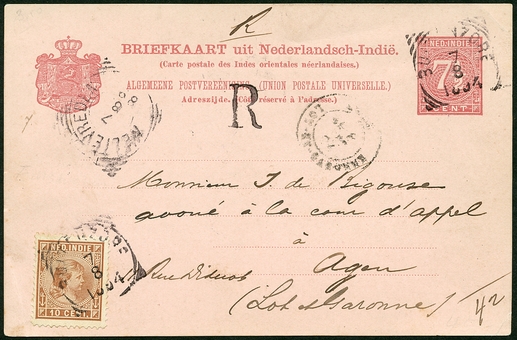 R
BRIEFKAART uit Nederlandsch-Indië.
(Carte postale des Indes orientales néerlandaises.)
ALGEMEENE POSTVEREENIGING (UNION POSTALE UNIVERSELLE.)
Adreszijde. (Côté réservé à l'adresse.)
NED:INDIË
7½
CENT
7
8
1894
WELTEVREDEN
R
Monsieur J. de Bigouse
avoué à la cour d'appel
à
Rue Diderot Agen
(Lot et Garonne)
1/42
NED:INDIË
10 CENT
7
8
1894